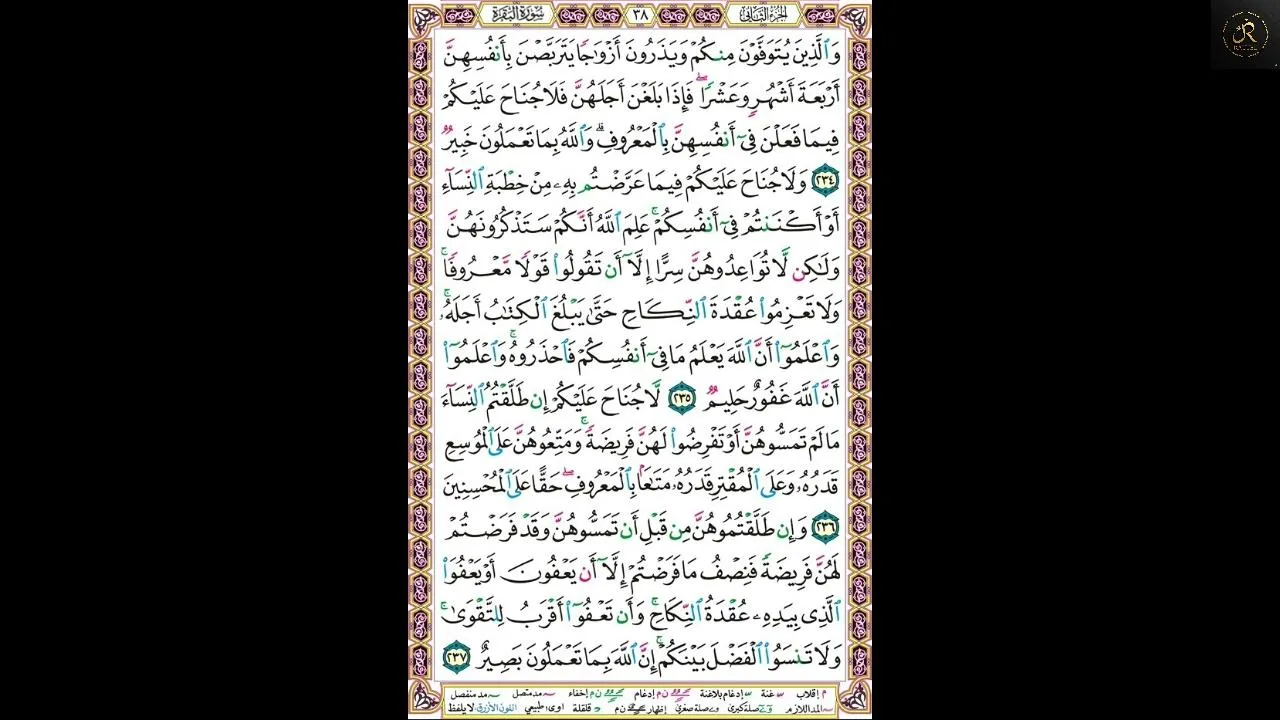 الجزء الثاني
٣٨
سورة البقرة
وَٱلَّذِينَ يُتَوَفَّوْنَ مِنكُمْ وَيَذَرُونَ أَزْوَٰجًا يَتَرَبَّصْنَ بِأَنفُسِهِنَّ
أَرْبَعَةَ أَشْهُرٍ وَعَشْرًا ۖ فَإِذَا بَلَغْنَ أَجَلَهُنَّ فَلَا جُنَاحَ عَلَيْكُمْ
فِيمَا فَعَلْنَ فِىٓ أَنفُسِهِنَّ بِٱلْمَعْرُوفِ ۗ وَٱللَّهُ بِمَا تَعْمَلُونَ خَبِيرٌ
٢٣٤ وَلَا جُنَاحَ عَلَيْكُمْ فِيمَا عَرَّضْتُم بِهِۦ مِنْ خِطْبَةِ ٱلنِّسَآءِ
أَوْ أَكْنَنتُمْ فِىٓ أَنفُسِكُمْ ۚ عَلِمَ ٱللَّهُ أَنَّكُمْ سَتَذْكُرُونَهُنَّ
وَلَٰكِن لَّا تُوَاعِدُوهُنَّ سِرًّا إِلَّآ أَن تَقُولُوا۟ قَوْلًا مَّعْرُوفًا ۚ
وَلَا تَعْزِمُوا۟ عُقْدَةَ ٱلنِّكَاحِ حَتَّىٰ يَبْلُغَ ٱلْكِتَٰبُ أَجَلَهُۥ ۚ
وَٱعْلَمُوٓا۟ أَنَّ ٱللَّهَ يَعْلَمُ مَا فِىٓ أَنفُسِكُمْ فَٱحْذَرُوهُ ۚ وَٱعْلَمُوٓا۟
أَنَّ ٱللَّهَ غَفُورٌ حَلِيمٌ ٢٣٥ لَّا جُنَاحَ عَلَيْكُمْ إِن طَلَّقْتُمُ ٱلنِّسَآءَ
مَا لَمْ تَمَسُّوهُنَّ أَوْ تَفْرِضُوا۟ لَهُنَّ فَرِيضَةً ۚ وَمَتِّعُوهُنَّ عَلَى ٱلْمُوسِعِ
قَدَرُهُۥ وَعَلَى ٱلْمُقْتِرِ قَدَرُهُۥ مَتَٰعًۢا بِٱلْمَعْرُوفِ ۖ حَقًّا عَلَى ٱلْمُحْسِنِينَ
٢٣٦ وَإِن طَلَّقْتُمُوهُنَّ مِن قَبْلِ أَن تَمَسُّوهُنَّ وَقَدْ فَرَضْتُمْ
لَهُنَّ فَرِيضَةً فَنِصْفُ مَا فَرَضْتُمْ إِلَّآ أَن يَعْفُونَ أَوْ يَعْفُوَا۟
ٱلَّذِى بِيَدِهِۦ عُقْدَةُ ٱلنِّكَاحِ ۚ وَأَن تَعْفُوٓا۟ أَقْرَبُ لِلتَّقْوَىٰ ۚ
وَلَا تَنسَوُا۟ ٱلْفَضْلَ بَيْنَكُمْ ۚ إِنَّ ٱللَّهَ بِمَا تَعْمَلُونَ بَصِيرٌ ٢٣٧
م إقلاب غنة إدغام بلاغنة ن م إدغام ن م إخفاء مد متصل مد منفصل
المد اللازم صلة كبرى صلة صغرى إظهار ن م قلقلة طبيعي اللون الأزرق لا يلفظ